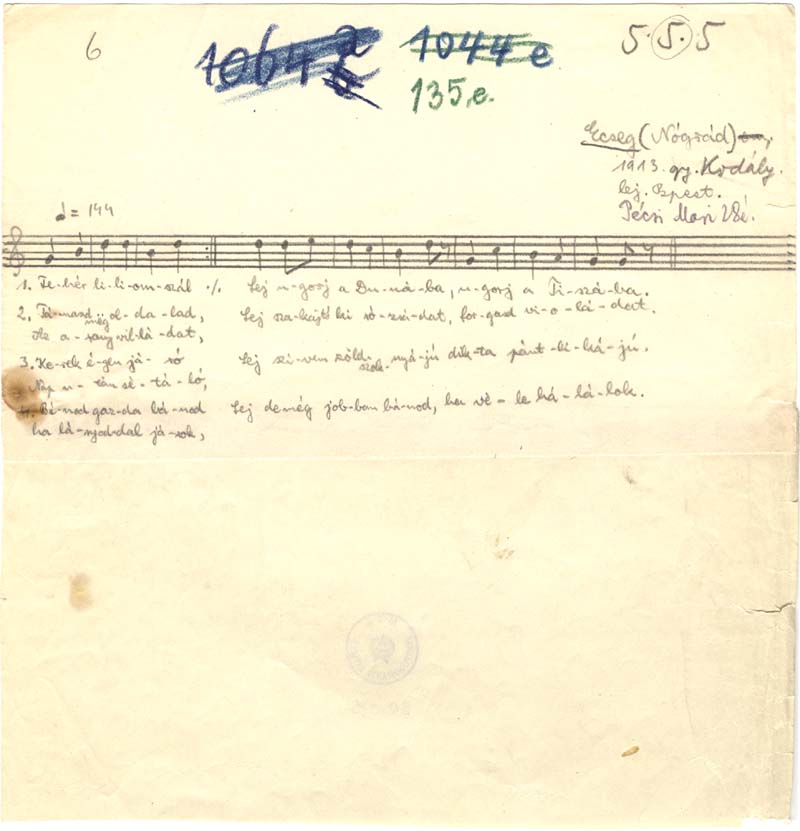 6
1064 a
1044 e
5.5.5
135,e.
Ecseg (Nógrád)
1913. gy. Kodály.
lej. Bpest.
Pécsi Mari
= 144
1. Fe-hér li-li-om-szál ·/. Lej u-gorj a Du-ná-ba, u-gorj a Ti-szá-ba.
2. Tá-maszd meg ol-da-lad, Lej sza-kajts ki ró-zsá-dat, for-gasd vi-o-lá-dat.
Az a-rany vil-lá-dat,
3. Ke-rek é-gen já-ró Lej szí-vem zöld szok-nyá-jú dik-ta pánt-li-ká-jú.
Nap u-tán sé-tá-ló,
4. Bá-nod gaz-da bá-nod Lej de még job-ban bá-nod, ha vé-le há-lá-lok.
ha lá-nyod-dal já-rok,